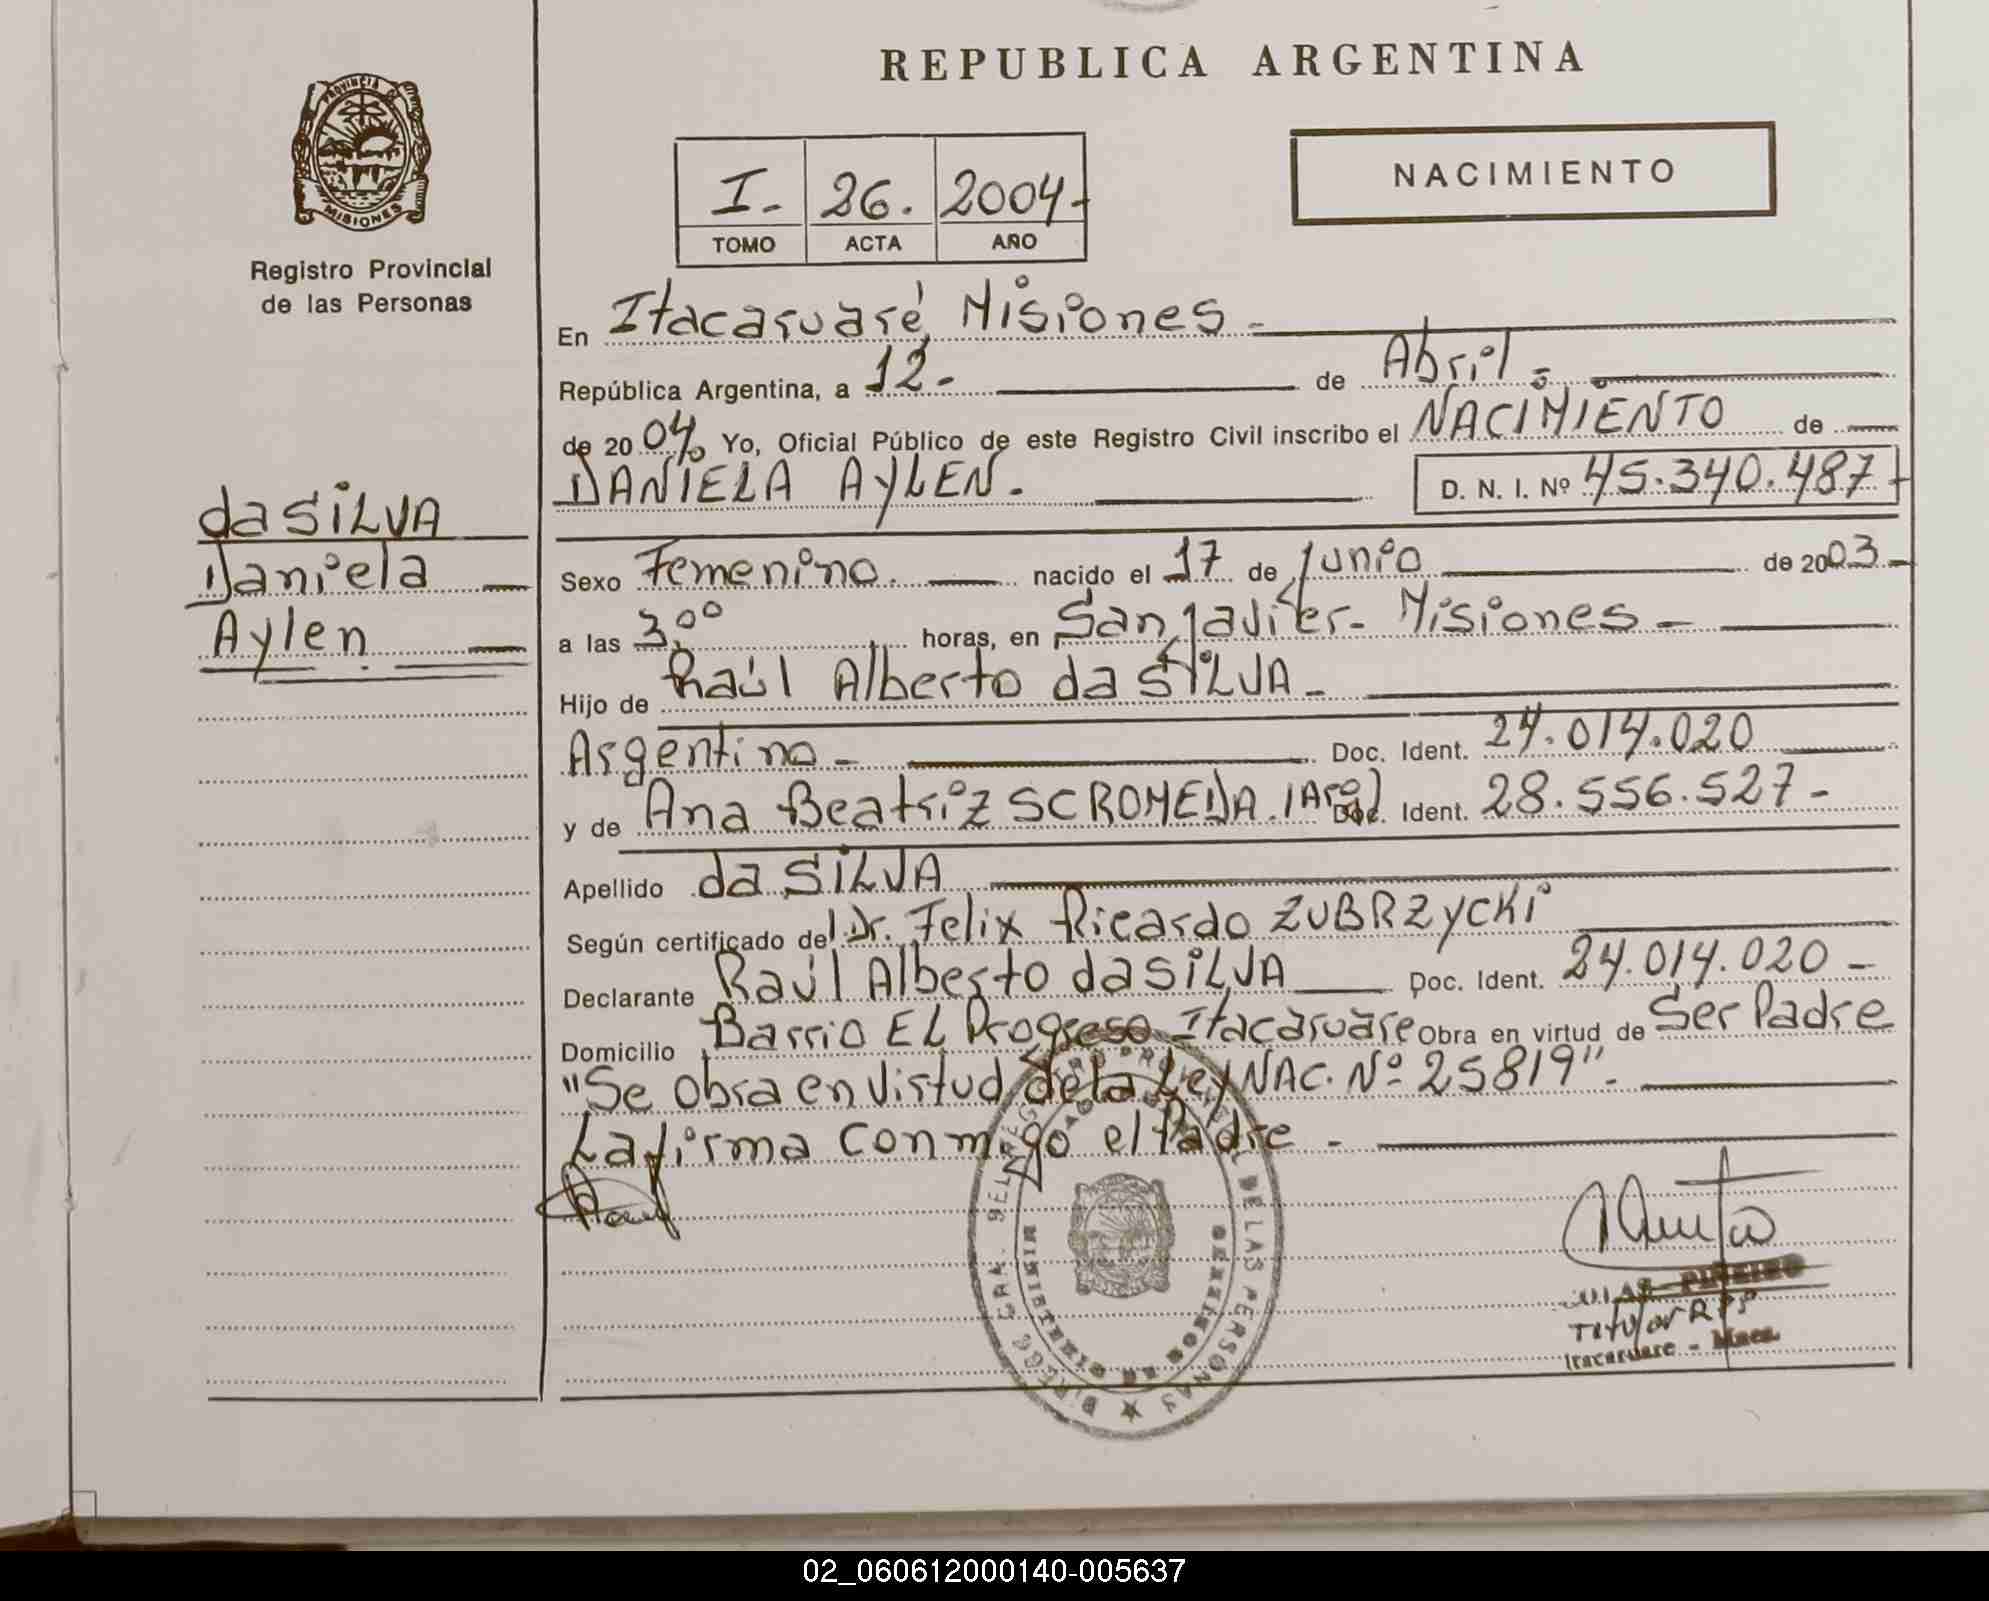 REPUBLICA ARGENTINA
PROVINCIA DE
MISIONES
Registro Provincial
de las Personas
I.- 26. 2004-
TOMO ACTA AÑO
NACIMIENTO
En Itacaruaré Misiones -
República Argentina, a 12.- de Abril.-
de 2004 Yo, Oficial Público de este Registro Civil inscribo el NACIMIENTO de
DANIELA AYLEN. D. N. I. Nº 45.340.487-
da SILVA
Daniela
Aylen
Sexo Femenino. nacido el 17 de Junio de 2003-
a las 3,00 horas, en San Javier- Misiones -
Hijo de Raúl Alberto da SILVA -
Argentino - Doc. Ident. 24.014.020
y de Ana Beatriz SCROMEDA. (Arg) Doc. Ident. 28.556.527-
Apellido da SILVA
Según certificado del Dr. Felix Ricardo ZUBRZYCKI
Declarante Raúl Alberto da SILVA Doc. Ident. 24.014.020 -
Domicilio Barrio EL Progreso Itacaruare Obra en virtud de Ser Padre
"Se obra en virtud de la Ley NAC. Nº 25819".
La firma conmigo el Padre -
DE LAS PERSONAS
PIÑEIRO
Titular RPP
Itacaruare - Mnes.
02_060612000140-005637